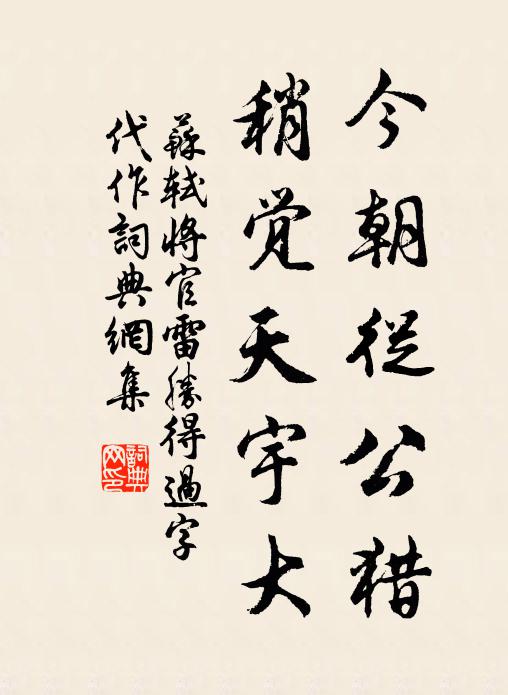 今朝從公猎
稍觉天宇大
蘇軾将官雷勝得過字
代作詞典網集
詞典網印